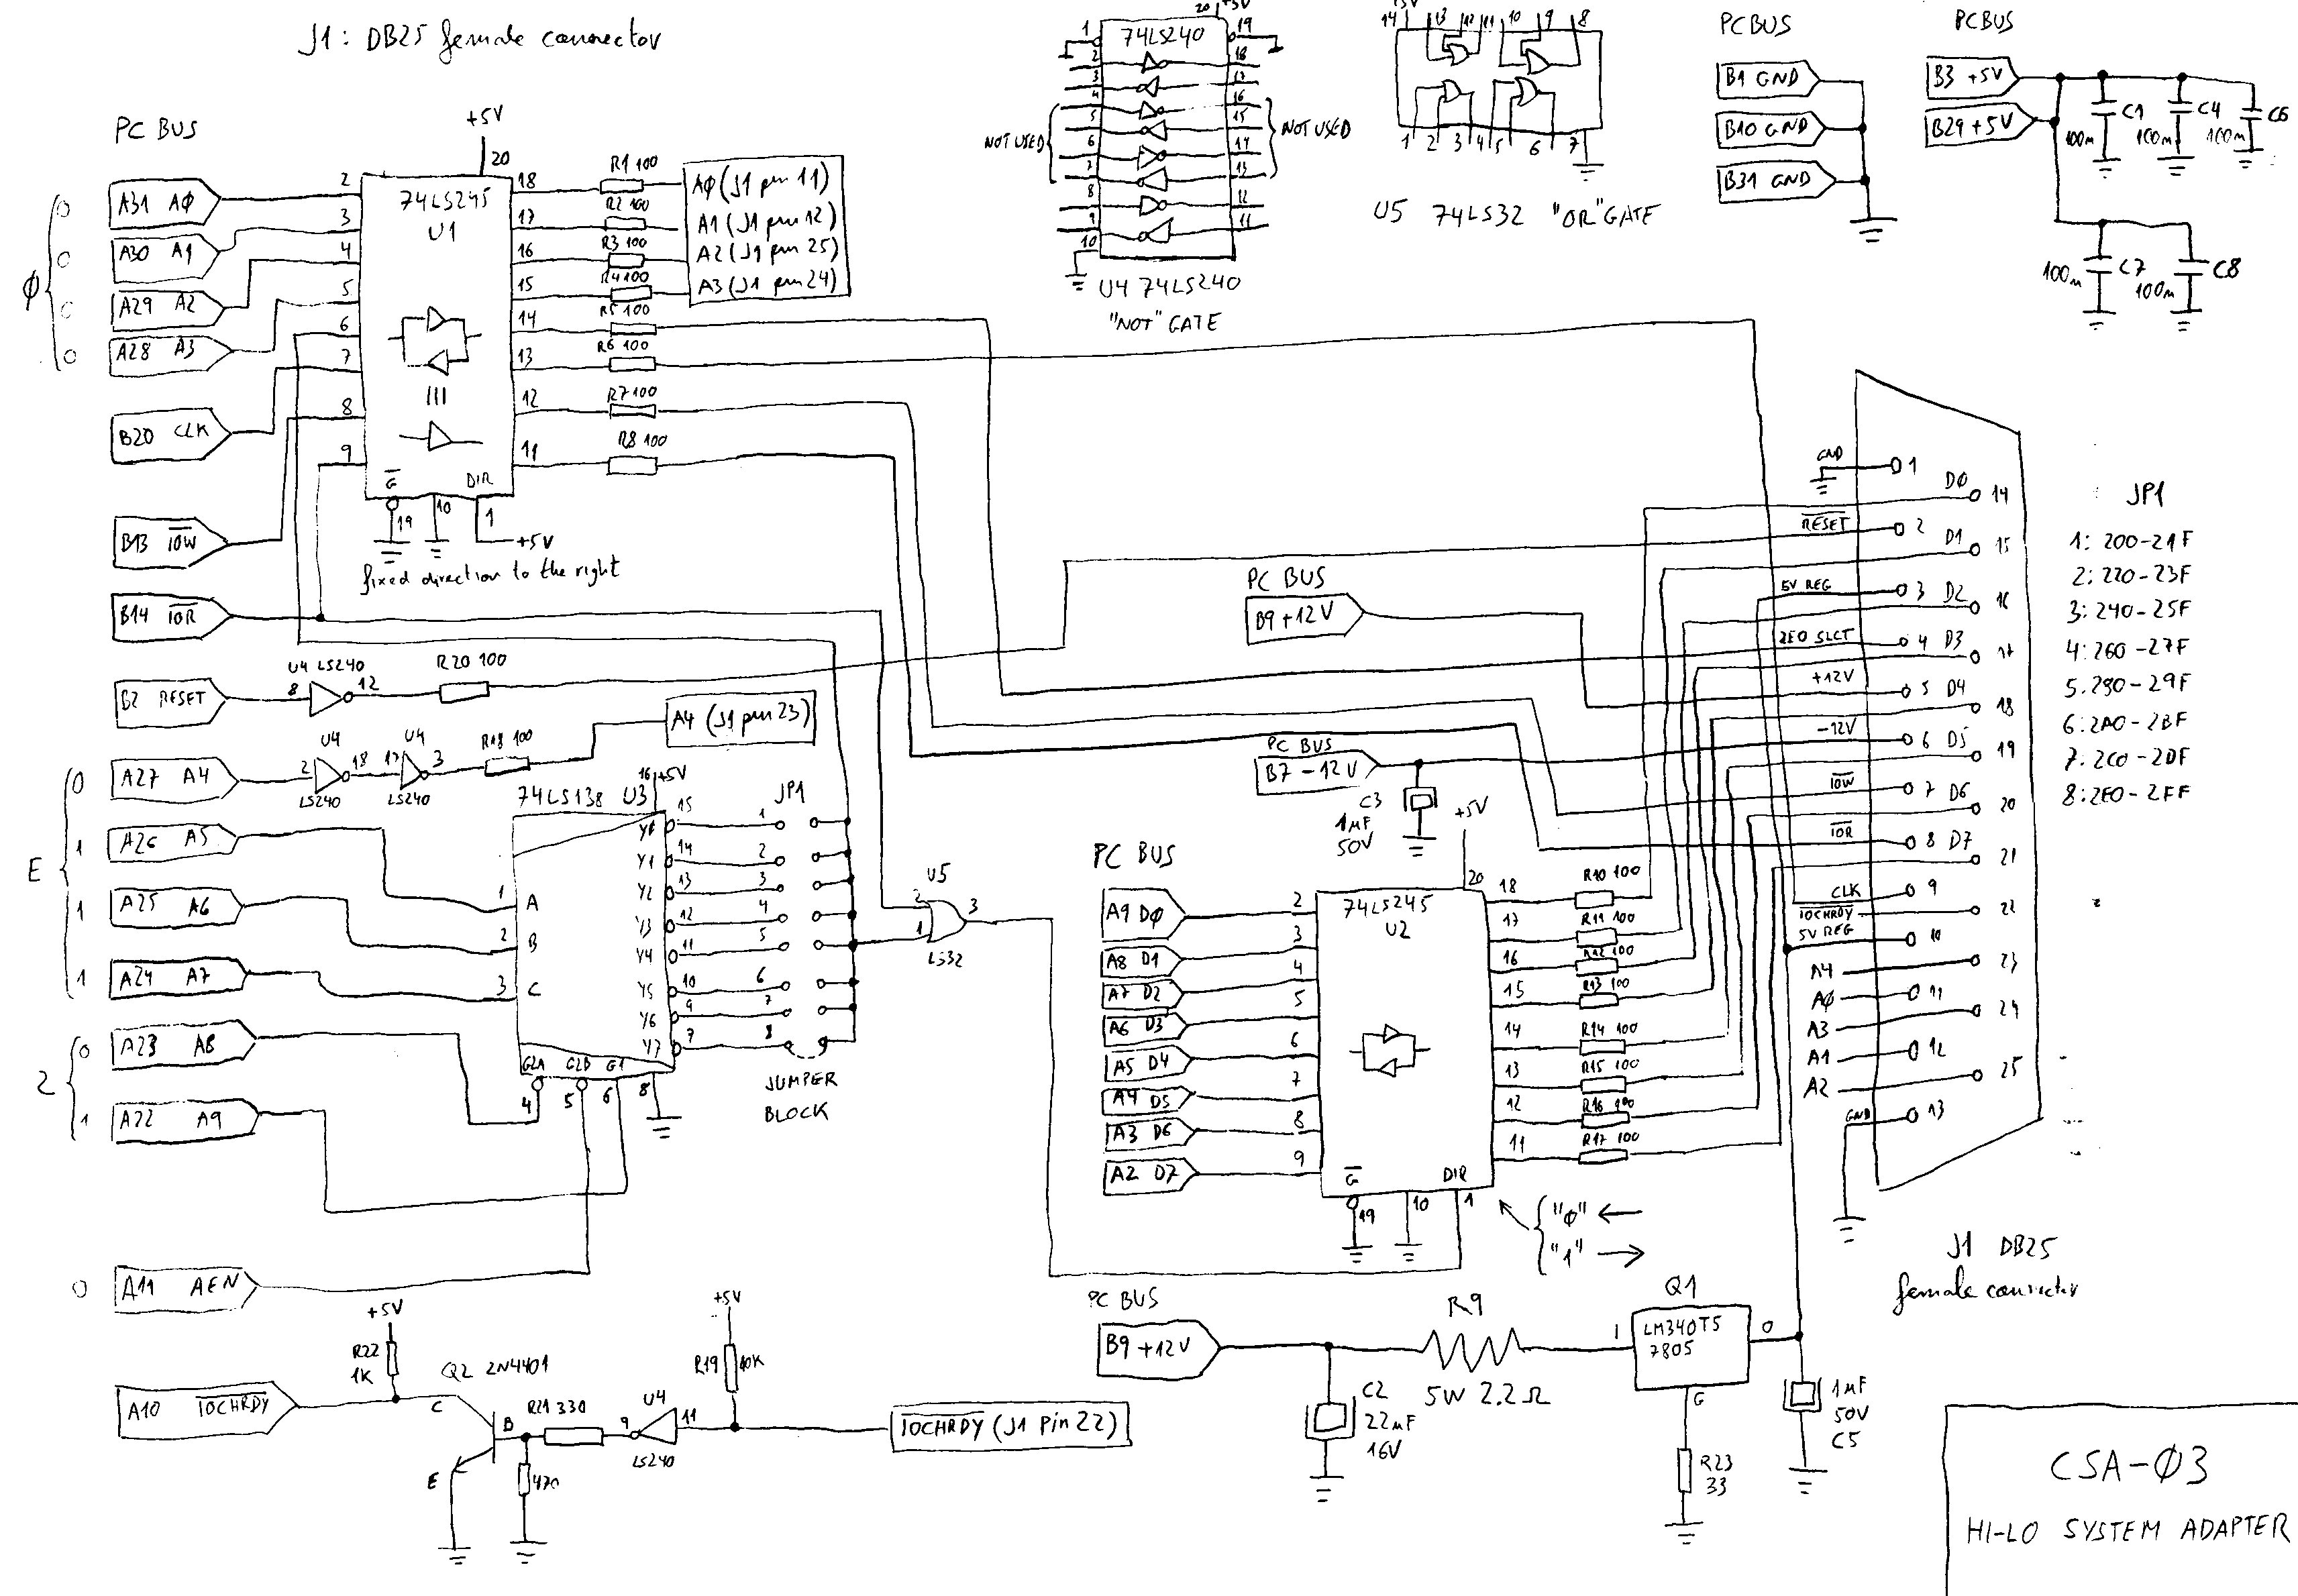 J1: DB25 female connector
PC BUS
+5V
20
74LS245
U1
A31 AØ
A30 A1
A29 A2
A28 A3
B20 CLK
B13 IOW
B14 IOR
Ø
0
0
0
0
2
3
4
5
6
7
8
9
18
17
16
15
14
13
12
11
R1 100
R2 100
R3 100
R4 100
R5 100
R6 100
R7 100
R8 100
AØ (J1 pin 11)
A1 (J1 pin 12)
A2 (J1 pin 25)
A3 (J1 pin 24)
G
DIR
19
10
1
+5V
fixed direction to the right
B2 RESET
U4 LS240
8
12
R20 100
A27 A4
U4
U4
2
18
17
3
LS240
LS240
R18 100
A4 (J1 pin 23)
E
0
1
1
1
A26 A5
A25 A6
A24 A7
2
0
1
A23 A8
A22 A9
0
A11 AEN
74LS138 U3
16
+5V
1
2
3
A
B
C
Y0
Y1
Y2
Y3
Y4
Y5
Y6
Y7
15
14
13
12
11
10
9
7
JP1
1
2
3
4
5
6
7
8
G2A
G2B
G1
4
5
6
8
JUMPER
BLOCK
U5
2
1
3
LS32
+5V
R22
1K
Q2 2N4401
A10 IOCHRDY
C
B
E
R21 330
470
U4
9
11
LS240
+5V
R19
10K
IOCHRDY (J1 Pin 22)
20
+5V
74LS240
1
2
3
4
5
6
7
8
9
10
19
18
17
16
15
14
13
12
11
NOT USED
NOT USED
U4 74LS240
"NOT" GATE
14
+5V
13
12
11
10
9
8
1
2
3
4
5
6
7
U5 74LS32 "OR" GATE
PC BUS
B1 GND
B10 GND
B31 GND
PC BUS
B3 +5V
B29 +5V
C1
100n
C4
100n
C6
100n
C7
100n
C8
100n
PC BUS
B9 +12V
PC BUS
B7 -12V
C3
1µF
50V
PC BUS
A9 DØ
A8 D1
A7 D2
A6 D3
A5 D4
A4 D5
A3 D6
A2 D7
2
3
4
5
6
7
8
9
+5V
20
74LS245
U2
18
17
16
15
14
13
12
11
R10 100
R11 100
R12 100
R13 100
R14 100
R15 100
R16 100
R17 100
G
DIR
19
10
1
"Ø" ←
"1" →
PC BUS
B9 +12V
C2
22µF
16V
R9
5W 2.2Ω
Q1
LM340T5
7805
1
0
G
R23
33
1µF
50V
C5
GND
1
D0
14
RESET
2
D1
15
5V REG
3
D2
16
2E0 SLCT
4
D3
17
+12V
5
D4
18
-12V
6
D5
19
IOW
7
D6
20
IOR
8
D7
21
CLK
9
IOCHRDY
22
5V REG
10
A4
23
AØ
11
A3
24
A1
12
A2
25
GND
13
JP1
1: 200-21F
2: 220-23F
3: 240-25F
4: 260-27F
5. 280-29F
6: 2A0-2BF
7: 2C0-2DF
8: 2E0-2FF
J1 DB25
female connector
CSA-Ø3
HI-LO SYSTEM ADAPTER